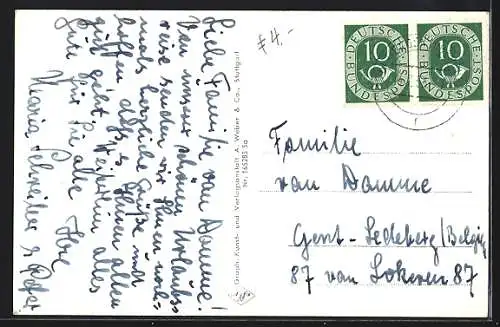 Liebe Familie van Damme!
Von unserer schönen Urlaubs-
reise senden wir Ihnen noch-
mals herzliche Grüße und
hoffen daß es Ihnen allen
gut geht. Weiterhin alles
Gute für Sie alle Ihre
Maria Schreiber & Peter
Graph. Kunst- und Verlagsanstalt A. Weber & Co., Stuttgart
Nr. 165285 5a
4.-
DEUTSCHE BUNDESPOST
10
DEUTSCHE BUNDESPOST
10
Familie
van Damme
Gent-Ledeberg/Belgie
87 van Lokeren 87